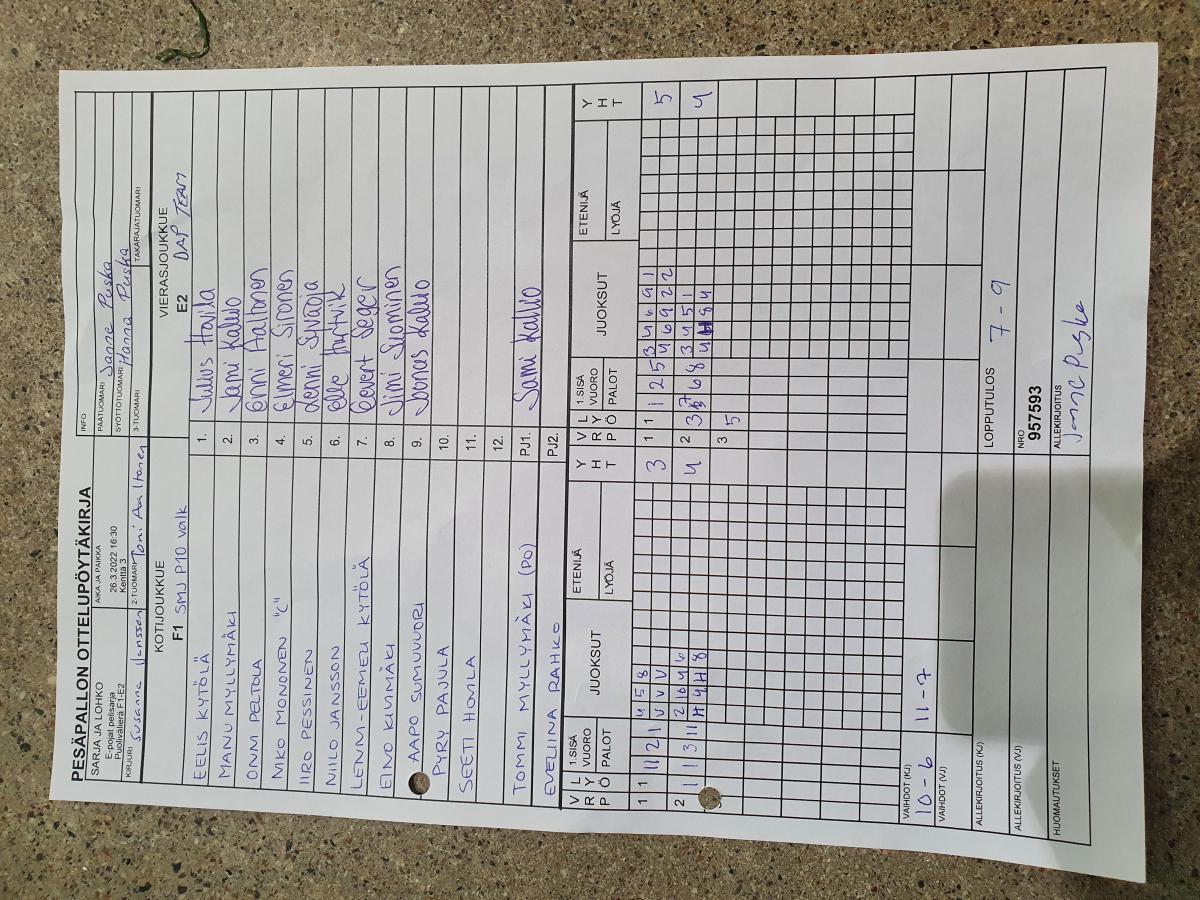 PESÄPALLON OTTELUPÖYTÄKIRJA
INFO
SARJA JA LOHKO
E-pojat pelisarja
Puolivälierä F1-E2
AIKA JA PAIKKA
26.3.2022 16:30
Kenttä 3
PÄÄTUOMARI Sanne Puska
SYÖTTÖTUOMARI Hanna Puska
KIRJURI Susanna Jansson
2-TUOMARI Toni Aaltonen
3-TUOMARI
TAKARAJATUOMARI
KOTIJOUKKUE
F1 SMJ P10 valk
VIERASJOUKKUE
E2 DAP TEAM
EELIS KYTÖLÄ 1. Julius Havila
MANU MYLLYMÄKI 2. Jami Kalho
ONNI PELTOLA 3. Enni Aaltonen
NIKO MONONEN "C" 4. Elmeri Sironen
IIRO PESSINEN 5. Lenni
NIILO JANSSON 6. Olle Hurtvik
LENNI-EEMELI KYTÖLÄ 7. Eevert Seger
EINO KIVIMÄKI 8. Jimi Suominen
AAPO SUMUVUORI 9. Joonas Kalho
PYRY PAJULA 10.
SEETI HOVILA 11.
12.
TOMMI MYLLYMÄKI (PO) PJ1. Sami Kalho
EVELIINA RAHKO PJ2.
V R P L Y Ö 1.SISÄ VUORO PALOT JUOKSUT ETENIJÄ LYÖJÄ Y H T
V R P L Y Ö 1.SISÄ VUORO PALOT JUOKSUT ETENIJÄ LYÖJÄ Y H T
1 1 11 2 1 4 5 8 3
V V V
2 1 1 3 11 2 10 4 6 4
1 1 1 2 5 3 4 6 9 1 5
4 6 9 2 2
2 3 6 8 3 4 5 1 4
3 5
VAIHDOT (KJ)
10-6 11-7
VAIHDOT (VJ)
ALLEKIRJOITUS (KJ)
LOPPUTULOS 7-9
ALLEKIRJOITUS (VJ)
NRO
957593
HUOMAUTUKSET
ALLEKIRJOITUS